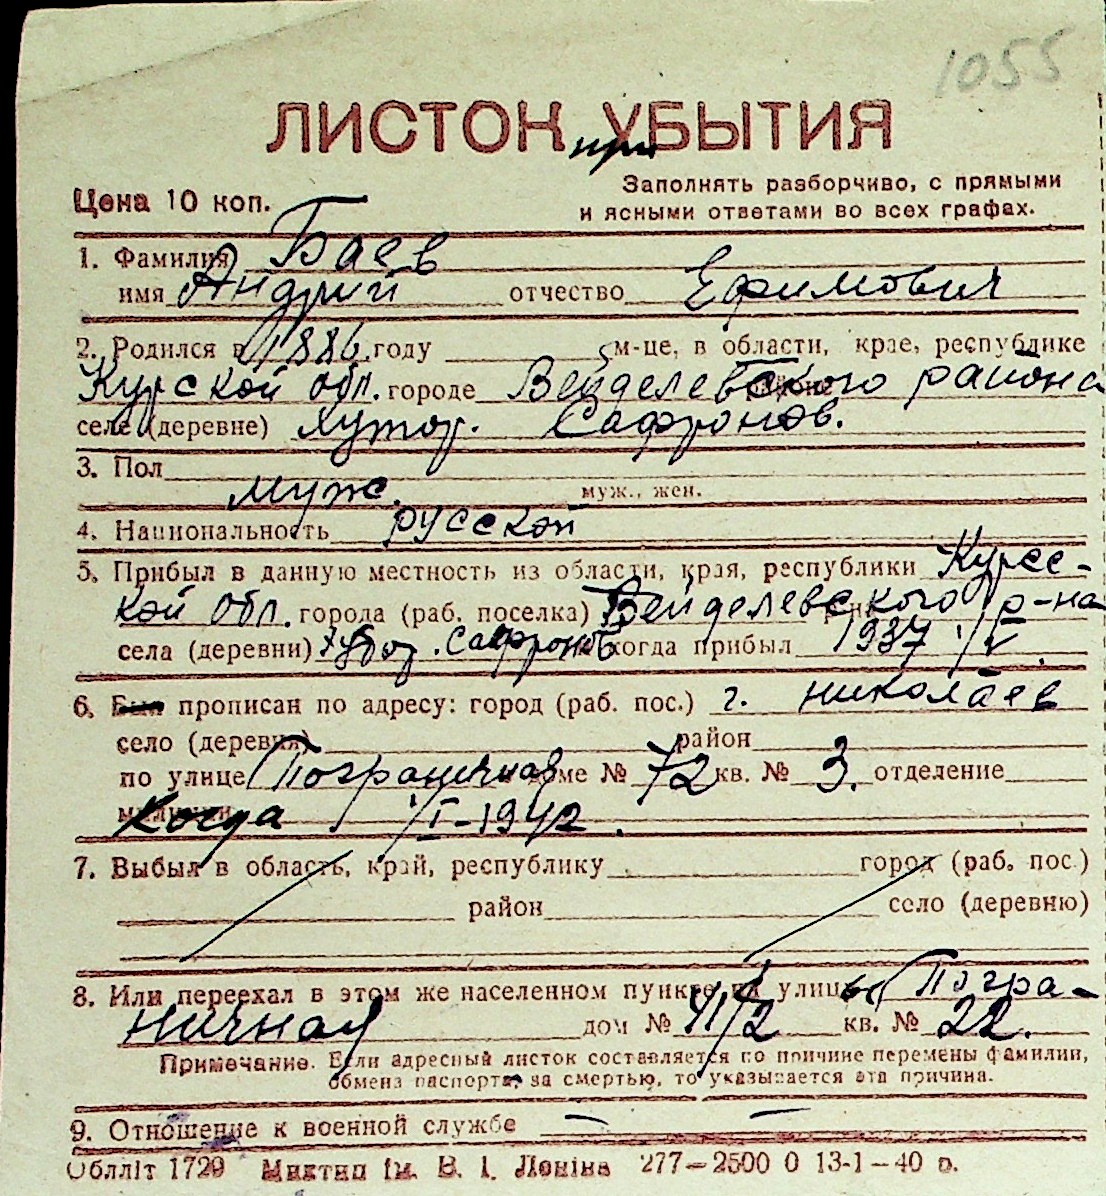 1055
ЛИСТОК УБЫТИЯ
при
Цена 10 коп.
Заполнять разборчиво, с прямыми
и ясными ответами во всех графах.
1. Фамилия Баев
имя Андрий отчество Ефимович
2. Родился в 1886 году м-це, в области, крае, республике
Курской обл. городе Вейделевского района
селе (деревне) хутор. Сафронов.
3. Пол
муж. муж., жен.
4. Национальность русской
5. Прибыл в данную местность из области, края, республики Курсс-
кой обл. города (раб. поселка) Вейделевского р-на
села (деревни) хутор. Сафронов когда прибыл 1937 1/V.
6. Был прописан по адресу: город (раб. пос.) г. николаев
село (деревня) район
по улице Пограничная доме № 72 кв. № 3. отделение
милиции Когда 1/I-1942.
7. Выбыл в область, край, республику город (раб. пос.)
район село (деревню)
8. Или переехал в этом же населенном пункте на улицы Погра-
ничная дом № 41/2 кв. № 22.
Примечание. Если адресный листок составляется по причине перемены фамилии,
обмена паспорта, за смертью, то указывается эта причина.
9. Отношение к военной службе —
Обллiт 1729 Миктип iм. В. I. Ленiна 277—2500 0 13-1—40 р.